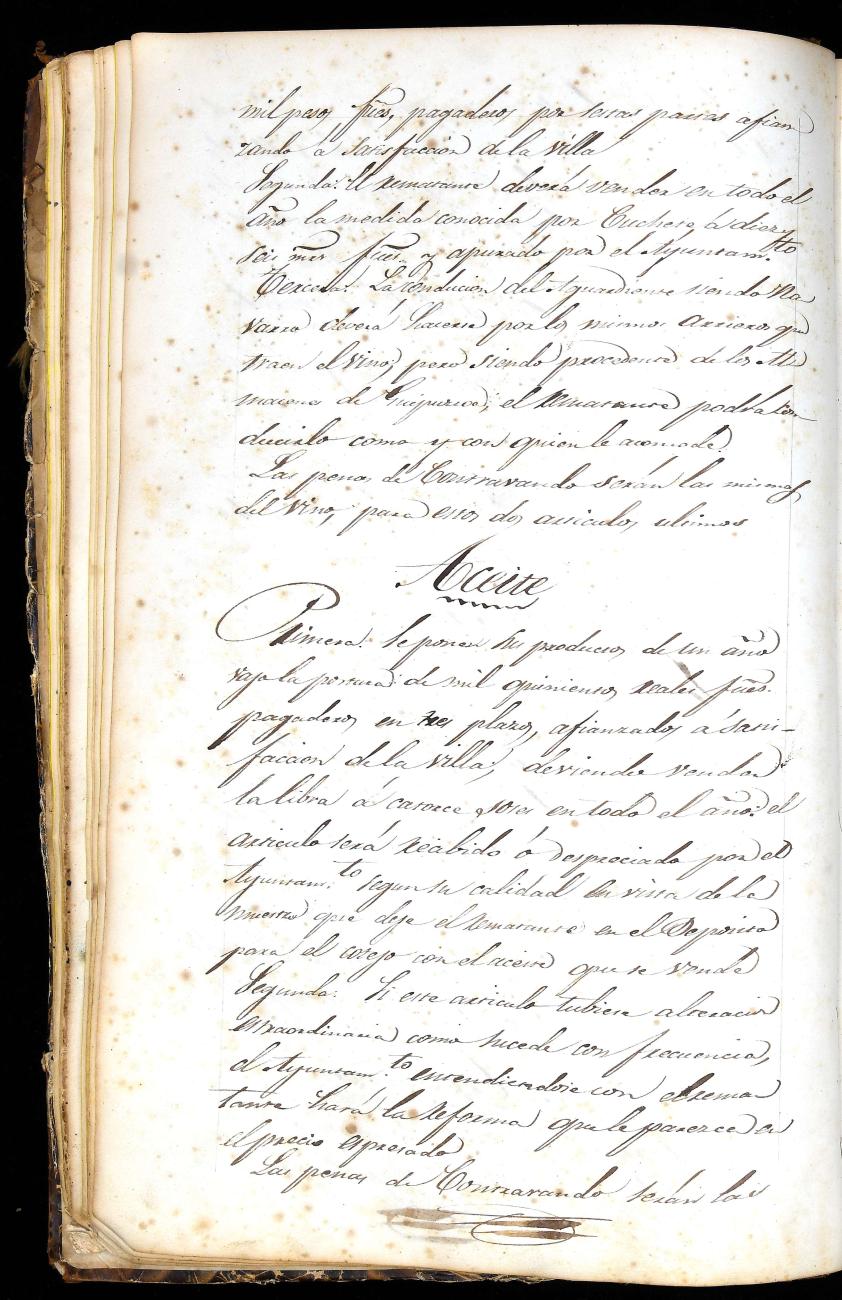 mil pesos fũes, pagaderos por tercias partes afian
zando a satisfaccion de la villa
Segunda: El Rematante deverá vender en todo el
año la medida conocida por Cuchete á diez y
seis mrs fũes y apurado por el Ayuntam.to
Tercera: La conducion del Aguardiente siendo Na
varro deverá hacerse por los mismos arrieros que
traen el vino, pero siendo procedente de los Al
macenes de Guipuzcoa, el Rematante podrá con
ducirlo como y con quien le acomode.
Las penas de Contravando serán las mismas
del vino, para estos dos articulos ultimos
Aceite
Primera: Se ponen sus productos de un año
vajo la postura de mil quinientos reales fũes.
pagaderos en tres plazos, afianzados á satis-
faccion de la villa, deviendo vender
la libra á catorce sotes en todo el año: el
articulo será recibido ó despreciado por el
Ayuntam.to segun su calidad en vista de la
muestra que deje el Rematante en el Deposito
para el cotejo con el aceite que se vende
Segunda: Si este articulo tubiese alteracion
estraordinaria como sucede con frecuencia,
el Ayuntam.to entendiendose con el rema
tante hará la reforma que le parezca en
el precio espresado
Las penas de Contravando serán las